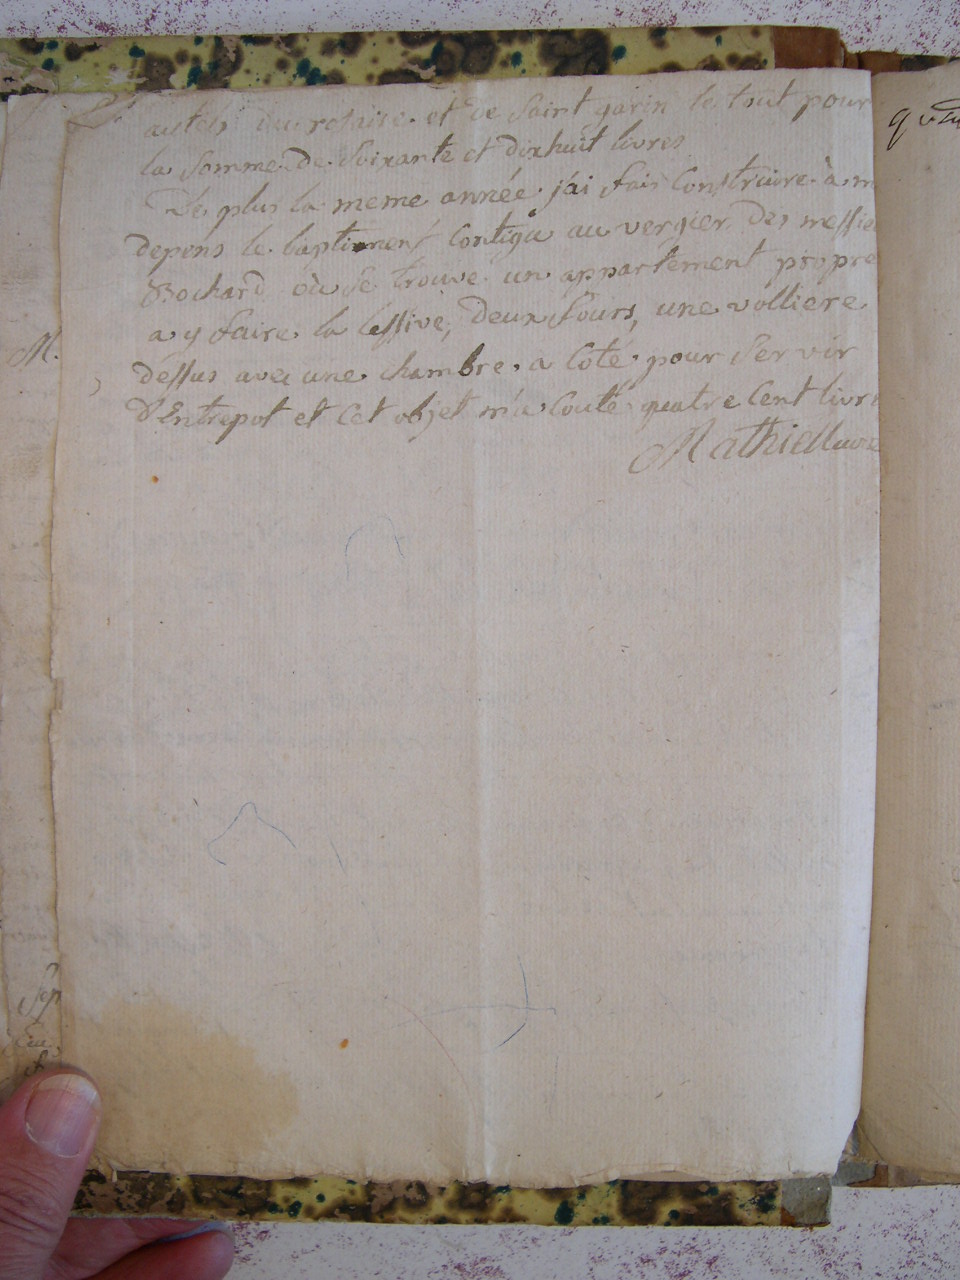 autels du rosaire et de saint garin le tout pour
la somme de soixante et dixhuit livres
De plus la meme année j'ai fais construire à m
depens le baptiment contigu au vergier des messie
Bochard où se trouve un appartement propre
a y faire la lessive, deux fours, une volliere
dessus avec une chambre a coté pour servir
d'Entrepot et cet objet m'a couté quatre cent livr
M.